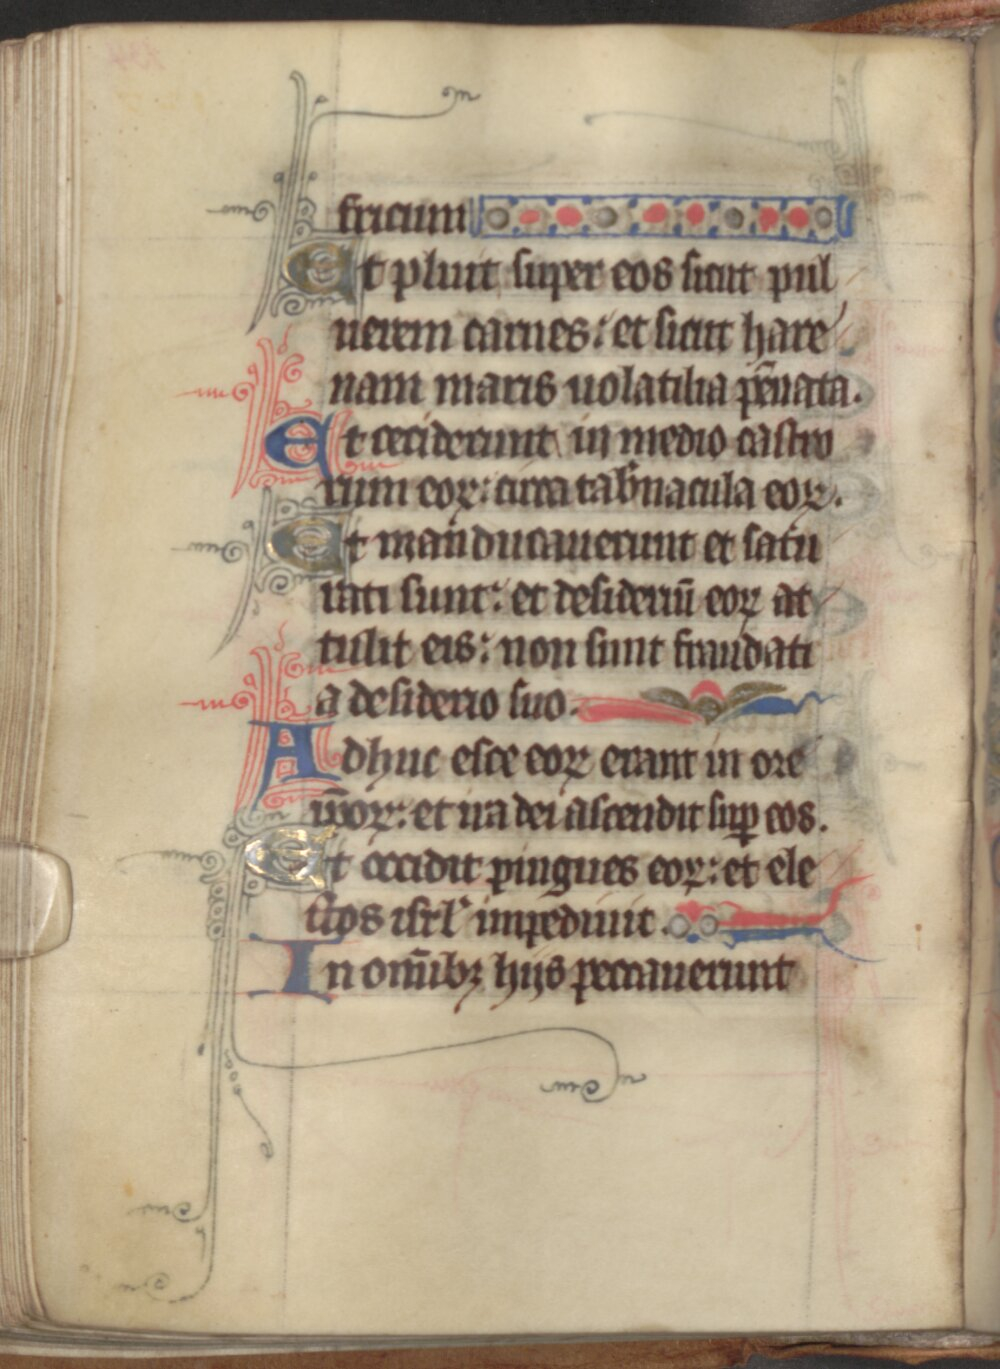 fricum
Et pluit super eos sicut pul
uerem carnes: et sicut hare
nam maris uolatilia pēnata.
Et ceciderunt in medio castro
rum eoꝝ: circa tab̄nacula eoꝝ.
Et manducauerunt et satu
rati sunt: et desideriū eoꝝ at
tulit eis: non sunt fraudati
a desiderio suo.
Adhuc esce eoꝝ erant in ore
ip̄oꝝ: et ira dei ascendit suꝑ eos.
Et occidit pingues eoꝝ: et ele
ctos isrl' impediuit.
In om̄ibꝫ hijs peccauerunt